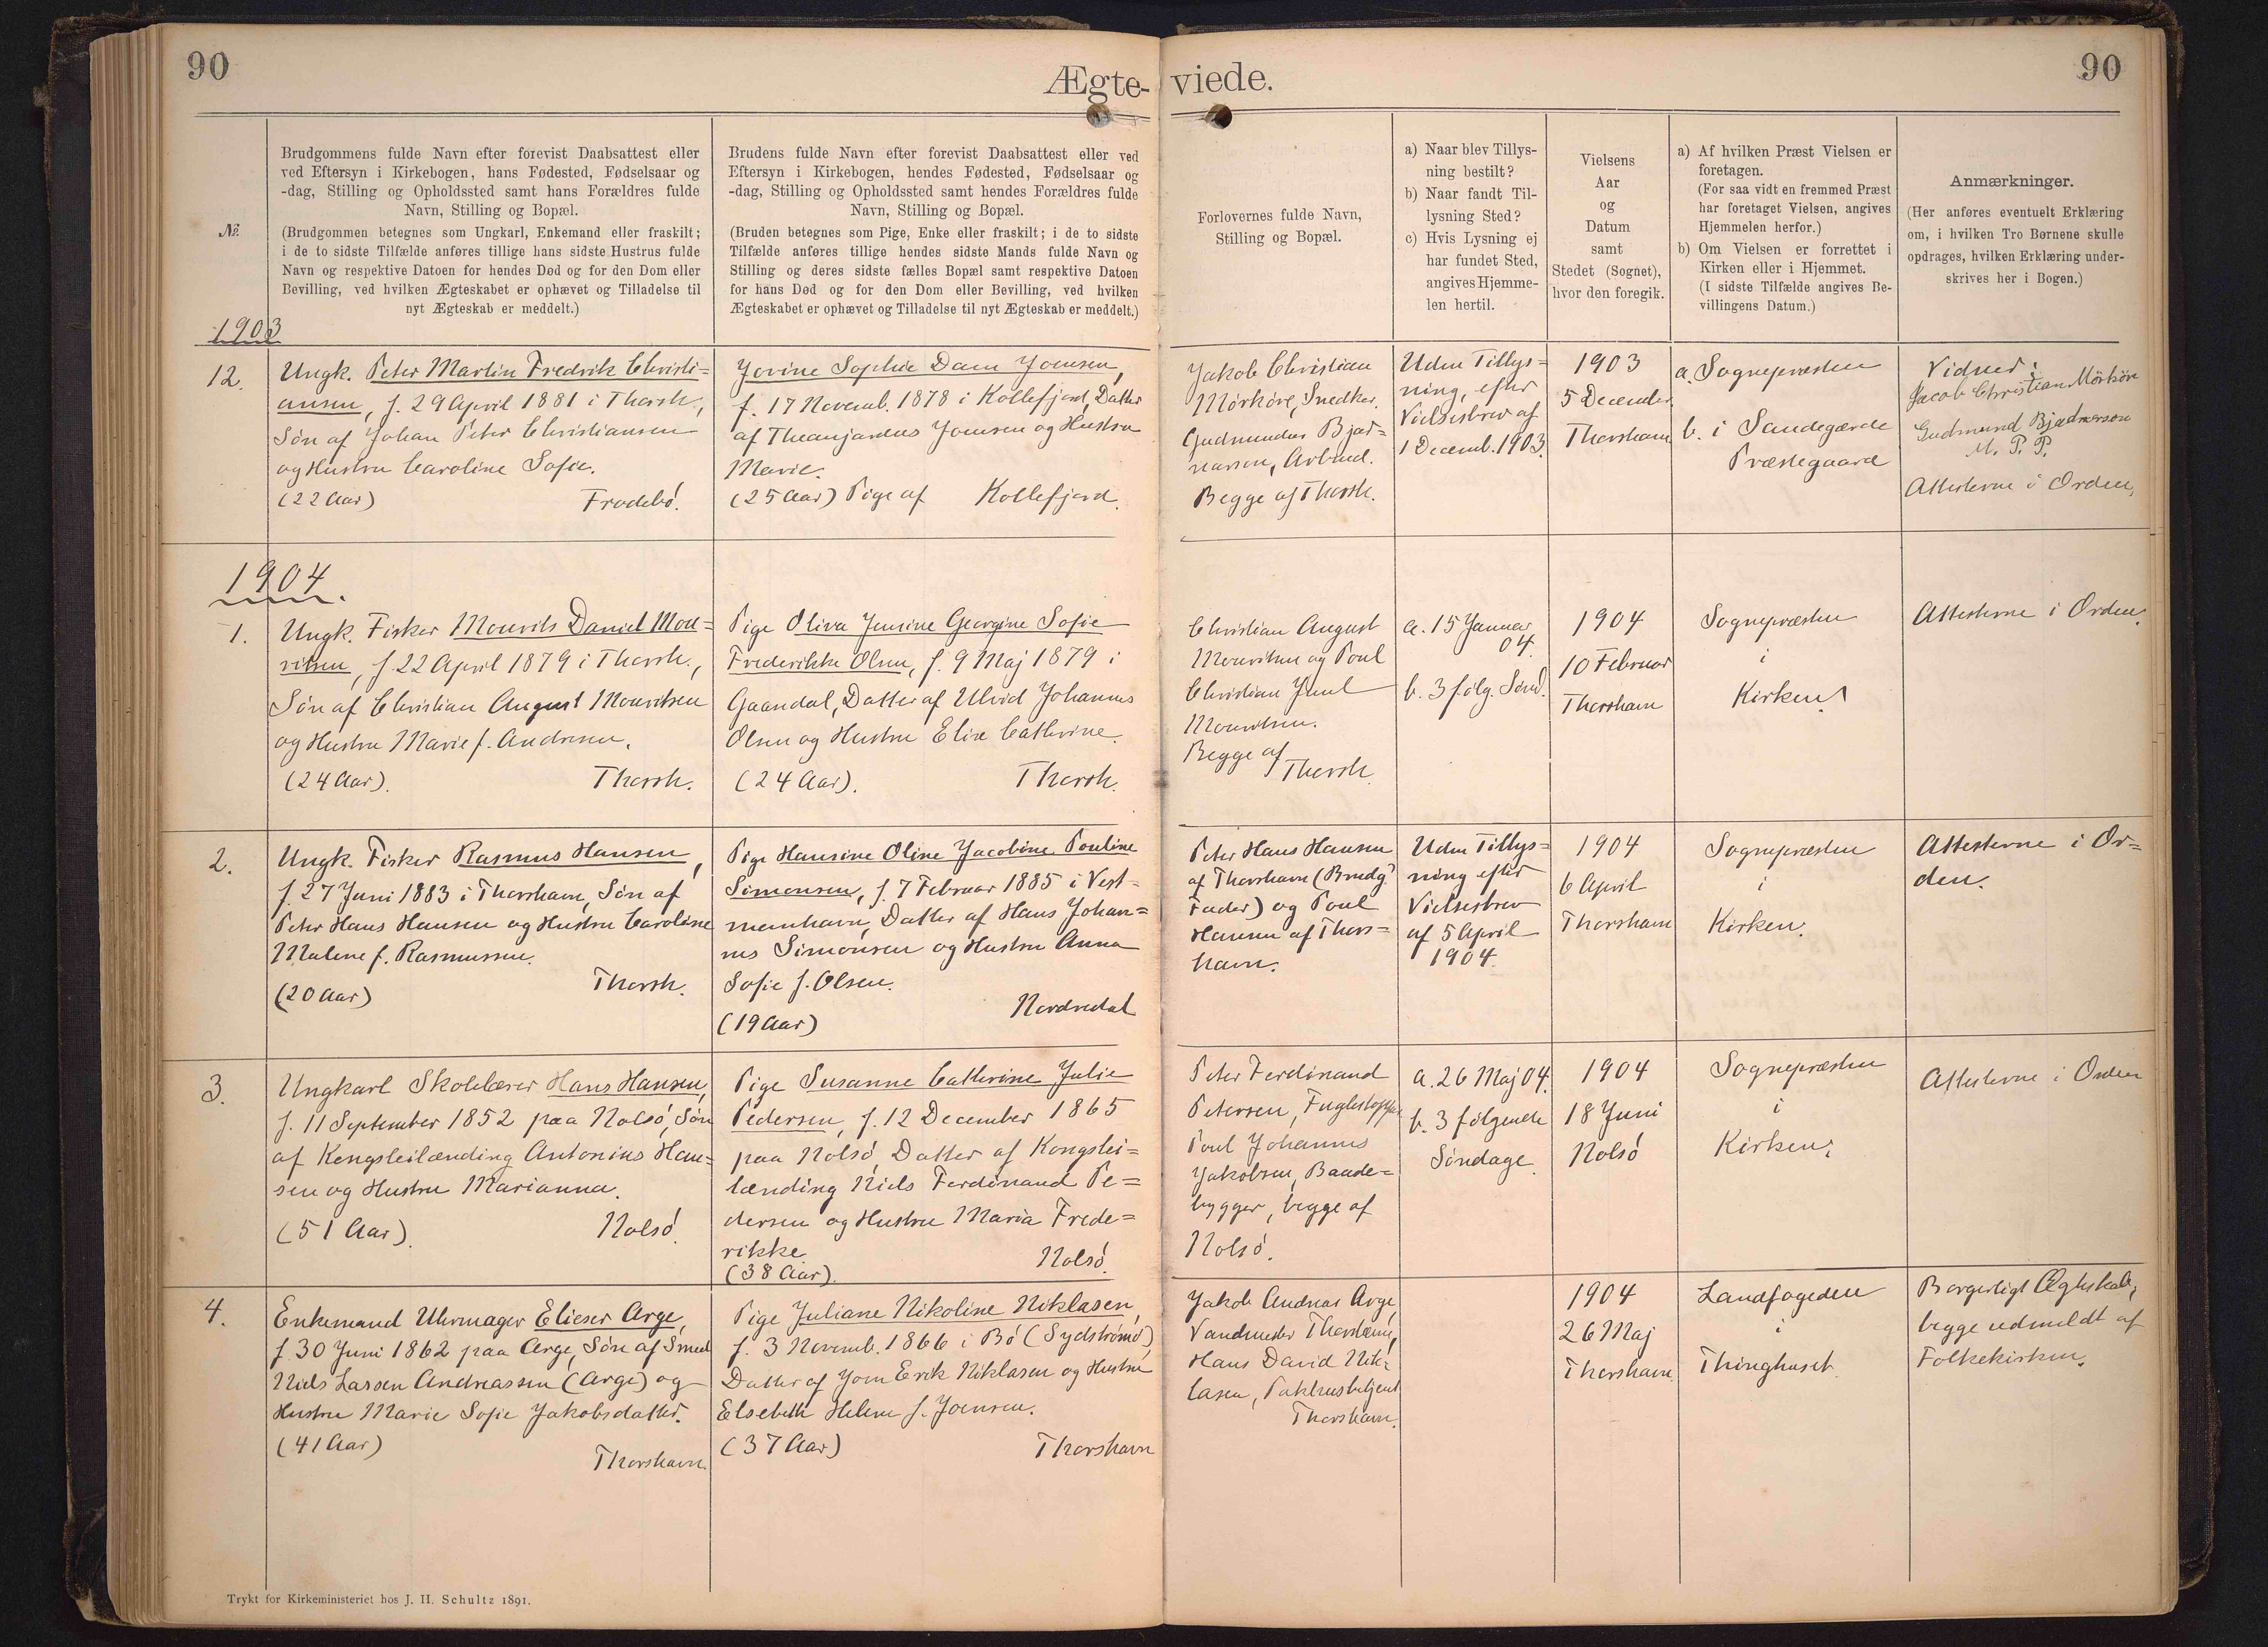 90
Ægte-
viede.
90
№.
Brudgommens fulde Navn efter forevist Daabsattest eller
ved Eftersyn i Kirkebogen, hans Fødested, Fødselsaar og
-dag, Stilling og Opholdssted samt hans Forældres fulde
Navn, Stilling og Bopæl.
(Brudgommen betegnes som Ungkarl, Enkemand eller fraskilt;
i de to sidste Tilfælde anføres tillige hans sidste Hustrus fulde
Navn og respektive Datoen for hendes Død og for den Dom eller
Bevilling, ved hvilken Ægteskabet er ophævet og Tilladelse til
nyt Ægteskab er meddelt.)
Brudens fulde Navn efter forevist Daabsattest eller ved
Eftersyn i Kirkebogen, hendes Fødested, Fødselsaar og
-dag, Stilling og Opholdssted samt hendes Forældres fulde
Navn, Stilling og Bopæl.
(Bruden betegnes som Pige, Enke eller fraskilt; i de to sidste
Tilfælde anføres tillige hendes sidste Mands fulde Navn og
Stilling og deres sidste fælles Bopæl samt respektive Datoen
for hans Død og for den Dom eller Bevilling, ved hvilken
Ægteskabet er ophævet og Tilladelse til nyt Ægteskab er meddelt.)
Forlovernes fulde Navn,
Stilling og Bopæl.
a) Naar blev Tillys-
ning bestilt?
b) Naar fandt Til-
lysning Sted?
c) Hvis Lysning ej
har fundet Sted,
angives Hjemme-
len hertil.
Vielsens
Aar
og
Datum
samt
Stedet (Sognet),
hvor den foregik.
a) Af hvilken Præst Vielsen er
foretagen.
(For saa vidt en fremmed Præst
har foretaget Vielsen, angives
Hjemmelen herfor.)
b) Om Vielsen er forrettet i
Kirken eller i Hjemmet.
(I sidste Tilfælde angives Be-
villingens Datum.)
Anmærkninger.
(Her anføres eventuelt Erklæring
om, i hvilken Tro Børnene skulle
opdrages, hvilken Erklæring under-
skrives her i Bogen.)
1903
12.
Ungk. Peter Martin Fredrik Christi=
ansen, f. 29 April 1881 i Thorsh.,
Søn af Johan Peter Christiansen
og Hustru Caroline Sofie.
(22 Aar) Frodebø.
Jovine Sophie Dam Joensen,
f. 17 Novemb. 1878 i Kollefjord, Datter
af Joensen og Hustru
Marie.
(25 Aar) Pige af Kollefjord.
Jakob Christian
Mørkøre, Snedker.
Gudmundur Bjar=
narson, Arbmd.
Begge af Thorsh.
Uden Tillys=
ning, efter
Vielsesbrev af
1 Decemb. 1903.
1903
5 December
Thorshavn
a. Sognepræsten
b. i Sandegærde
Præstegaard
Vidner:
Jacob Christian Mörköre
Gudmund Bjadnerson
M. P. P.
Attesterne i Orden,
1904.
1.
Ungk. Fisker Mourits Daniel Mou=
ritsen, f. 22 April 1879 i Thorsh.,
Søn af Christian August Mouritsen
og Hustru Marie f. Andresen.
(24 Aar). Thorsh.
Pige Oliva Jensine Georgine Sofie
Frederikke Olsen, f. 9 Maj 1879 i
Gaandal, Datter af Johannes
Olsen og Hustru Cathrine.
(24 Aar). Thorsh.
Christian August
Mouritsen og Poul
Christian Juul
Mouritsen.
Begge af
Thorsh.
a. 15 Januar
04.
b. 3 følg. Sønd.
1904
10 Februar
Thorshavn
Sognepræsten
i
Kirken.
Attesterne i Orden.
2.
Ungk. Fisker Rasmus Hansen,
f. 27 Juni 1883 i Thorshavn, Søn af
Peter Hans Hansen og Hustru Caroline
Malene f. Rasmussen.
(20 Aar) Thorsh.
Pige Hansine Oline Jacobine Pouline
Simonsen, f. 7 Februar 1885 i Vest=
manhavn, Datter af Hans Johan=
nes Simonsen og Hustru Anna
Sofie f. Olsen.
(19 Aar) Nordredal
Peter Hans Hansen
af Thorshavn (Brudg.
Fader) og Poul
Hansen af Thors=
havn.
Uden Tillys=
ning efter
Vielsesbrev
af 5 April
1904.
1904
6 April
Thorshavn
Sognepræsten
i
Kirken.
Attesterne i Or=
den.
3.
Ungkarl Skolelærer Hans Hansen,
f. 11 September 1852 paa Nolsø, Søn
af Kongsleilænding Antonius Han=
sen og Hustru Marianna.
(51 Aar). Nolsø.
Pige Susanne Cathrine Julie
Pedersen, f. 12 December 1865
paa Nolsø, Datter af Kongslei=
lænding Niels Ferdinand Pe=
dersen og Hustru Maria Frede=
rikke
(38 Aar). Nolsø.
Peter Ferdinand
Petersen,
Poul Johannes
Jakobsen, Baade=
bygger, begge af
Nolsø.
a. 26 Maj 04.
b. 3 følgende
Søndage.
1904
18 Juni
Nolsø
Sognepræsten
i
Kirken.
Attesterne i Orden
4.
Enkemand Uhrmager Elieser Arge,
f. 30 Juni 1862 paa Arge, Søn af Smed
Niels Lassen Andreassen (Arge) og
Hustru Marie Sofie Jakobsdatter.
(41 Aar) Thorshavn.
Pige Juliane Nikoline Niklasen,
f. 3 Novemb. 1866 i Bø (Sydstrømø),
Datter af Joen Erik Niklasen og Hustru
Elsebeth Helene f. Joensen.
(37 Aar) Thorshavn
Jakob Andreas Arge,
Vandmester Thorshavn,
Hans David Nik=
lasen, Pakhusbetjent
Thorshavn.
1904
26 Maj
Thorshavn.
Landfogeden
i
Thinghuset.
Borgerligt Ægteskab,
begge udmeldt af
Folkekirken.
Trykt for Kirkeministeriet hos J. H. Schultz 1891.